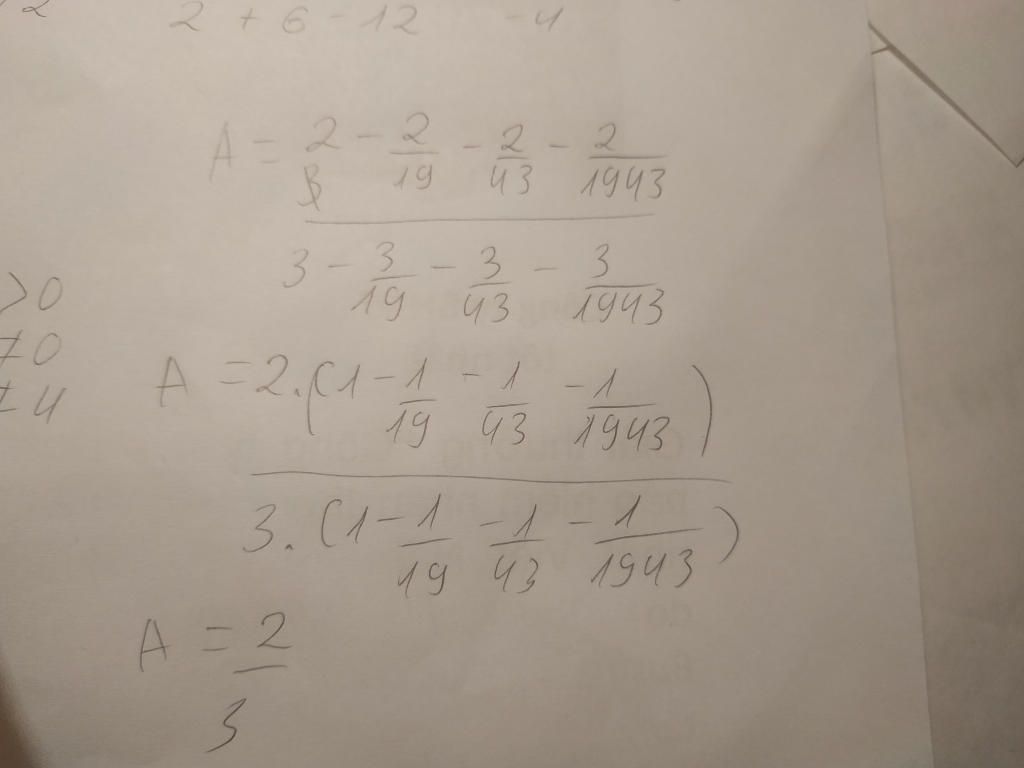 2 + 6 - 12 - 4
A = 2 - 2/19 - 2/43 - 2/1943
3 - 3/19 - 3/43 - 3/1943
>0
≠0
≠4
A = 2.(1 - 1/19 - 1/43 - 1/1943)
3.(1 - 1/19 - 1/43 - 1/1943)
A = 2/3